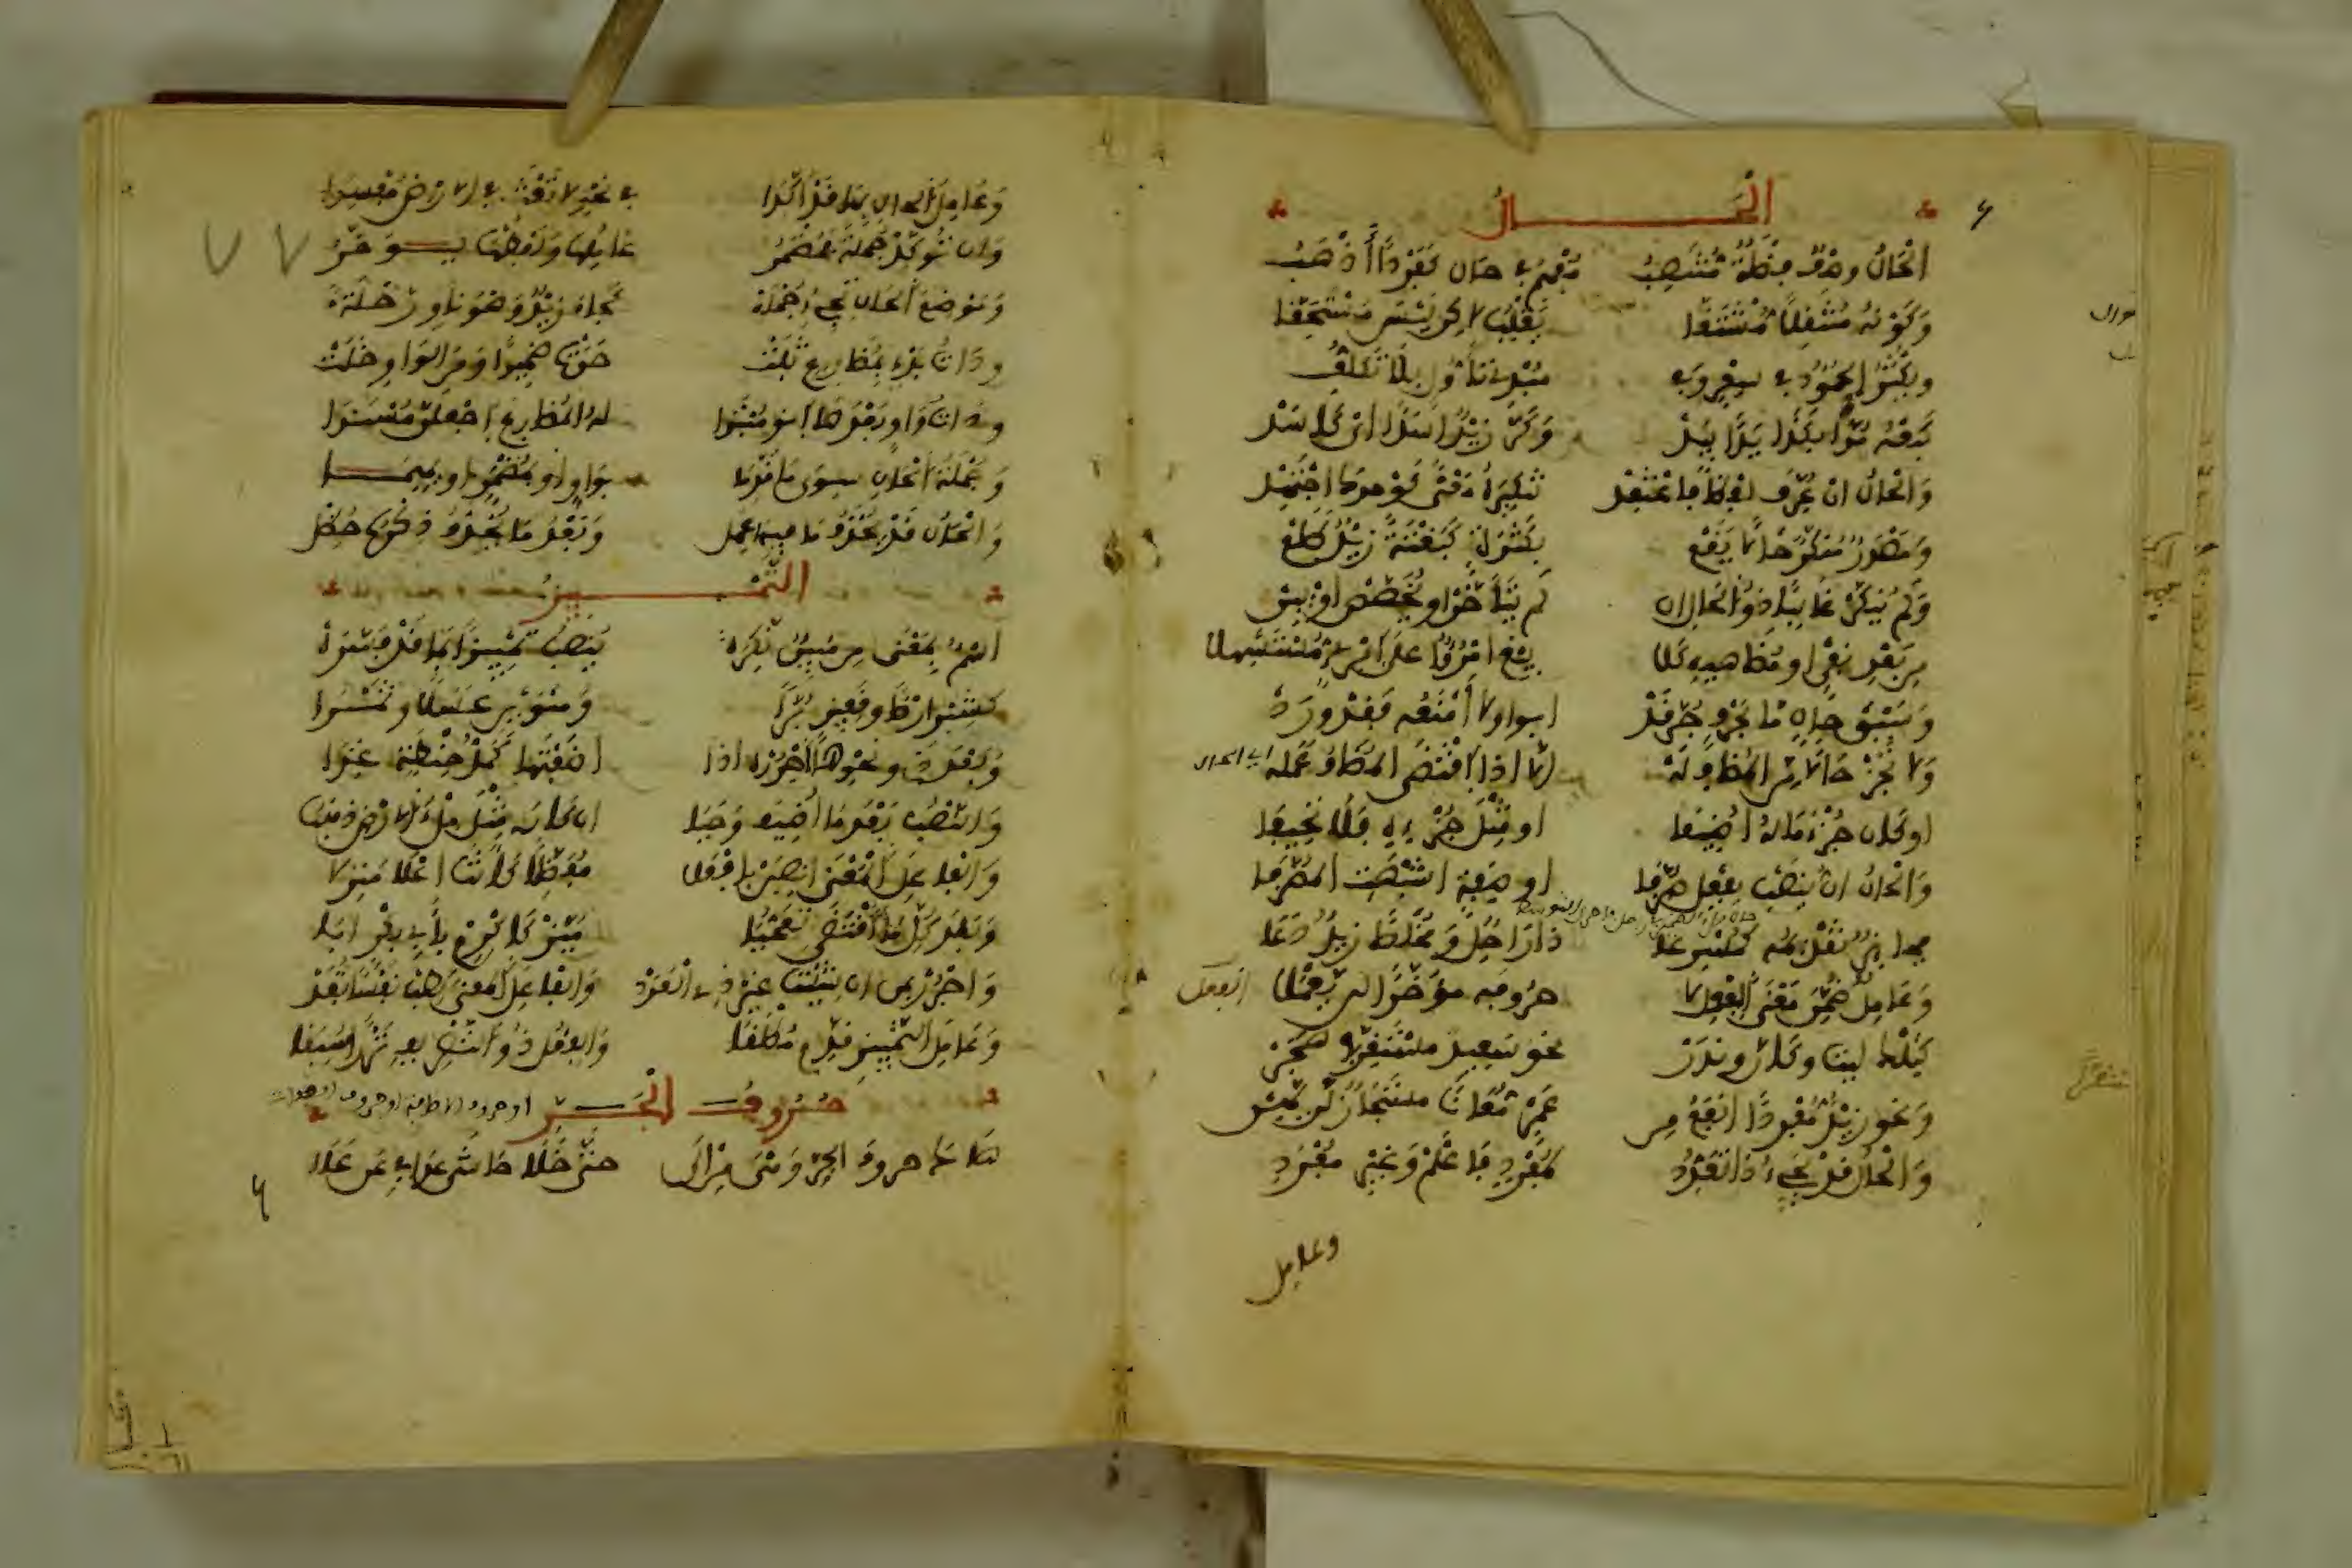 الْحَالُ
الْحَالُ وصْفٌ فضْلَةٌ مُنْتَصِبُ مُفْهِمُ في حال كَفَرْدًا أَذْهَبُ
وَكَوْنُهُ مُنْتَقِلًا مُشْتَقَّا يَغْلِبُ لاكن لَيْسَ مُسْتَحَقَّا
ويَكْثُرُ الْجُمُودُ في سعر وفي مُبْدِي تَأَوُّلٍ بِلَا تَكَلُّفِ
كَبِعْهُ مُدًّا بِكَذَا يَدًا بِيَدْ وَكَرَّ زَيْدٌ أَسَدًا أي كَأَسَدْ
وَالْحَالُ ان عُرِّفَ لفظًا فاعْتَقِدْ تَنْكِيرَهُ مَعْنًى كَوَحدك اجْتَهِدْ
وَمَصْدَرٌ مُنَكَّرٌ حَالًا يَقَعْ بِكَثْرَةٍ كَبَغْتَةً زَيْدٌ طَلَعْ
وَلَمْ يُنَكَّرْ غَالِبًا ذُو الْحَالِ ان لَمْ يَتَأَخَّرْ او يُخَصَّصْ أوْ يَبِن
مِن بَعْدِ نفي او مُضَاهِيهِ كَلَا يَبْغِ امْرُؤٌ عَلَى امْرِئٍ مُسْتَسْهِلا
وَسَبْقَ حَالٍ مَا بِحَرْفٍ جُرَّ قَدْ ابوا ولا أَمْنَعُه فَقَدْ وَرَدْ
وَلا تُجِزْ حَالًا مِن الْمُضَافِ لَهْ الا اذا اقْتَضَى المضاف عَمَلَه أي الحال
او كان جُزْءَ مَا لَهُ أُضِيفَا او مِثْلَ جُزْءِهِ فَلَا تَحِيفَا
وَالْحَالُ ان يُنْصَبْ بِفِعْلٍ صُرِّفَا او صِفَةٍ اشْبَهَتِ المصَرَّفَا
فجائز تَقْدِيمُه كَمُسْرِعَا ذَا رَاحِلٌ وَمُخْلِصًا زيدٌ دَعَا
وَعَامِلٌ ضُمِّنَ مَعْنَى الْفِعْلِ لا حروفه مؤَخَّرًا لن يَعْمَلَا
كَتِلْكَ ليت وكأنّ ونَدَرْ نحو سَعِيدٌ مستَقِرًّا في هَجَرْ
وَنحو زيْدٌ مُفْرَدًا انفَعُ مِن عَمْرٍو مُعَانًا مستَجَازٌ لَن يَهِن
وَالْحَالُ قدْ يَجِيءُ ذَا تَعَدُّدِ لمُفْرَدٍ فَاعْلَمْ وَغَيْرِ مُفْرَدِ
وعامل
وَعَامِلُ الحال بِهَا قَدْ أُكِّدَا في نَحْوِ لا تَعْثَ في الارْضِ مُفْسِدَا
وَان تُوَكِّدْ جُمْلَةً فَمُضْمَرُ عَامِلُهَا وَلَفْظُهَا يُؤَخَّرُ
وَمَوْضِعَ الْحَالِ تَجِيءُ جُمْلَهْ كَجَاءَ زَيْدٌ وَهْوَ ناوٍ رِحْلَهْ
وذاتُ بَدْءٍ بِمُضَارِعٍ ثَبَتْ حَوَتْ ضَمِيرًا وَمن الْوَاوِ خَلَتْ
وذات وَاوٍ بَعْدَهَا انوِ مُبْتَدَا له الْمُضَارِعَ اجْعَلَنَّ مُسْنَدَا
وَجُمْلَةُ الْحَالِ سِوَى مَا قُدِّمَا بواوٍ او بمُضْمَرٍ او بِهِمَا
وَالْحَالُ قَدْ يُحْذَفُ مَا فيها عَمِل وَبَعْضُ مَا يُحْذَفُ ذِكْرُهُ حُظِل
التَّمْيِيزُ
اسْمٌ بِمَعْنَى مِن مُبِينٌ نَكِرَهْ يُنْصَبُ تَمْيِيزًا بِمَا قَدْ فَسَّرَهْ
كَشِبْرٍ ارْضًا وقَفِيزٍ بُرَّا وَمَنَوَيْنِ عَسَلًا وتَمْرَا
وَبَعْدَ ذي ونَحْوِهَا اجْرُرْهُ اذا اضَفْتَهَا كَمُدُّ حِنْطَةٍ غِذَا
وَالنَّصْبُ بَعْدَ مَا أُضِيفَ وَجَبَا ان كان مِثْلَ مِلْءُ الارْضِ ذهبا
وَالْفَاعِلَ الْمَعْنَى انْصِبَنْ بِافْعَلَا مُفَضِّلًا كَأَنْتَ اعْلَا مَنْزِلا
وَبَعْدَ كُلِّ مَا اقْتَضَى تَعَجُّبَا مَيِّزْ كَاكْرِمْ بِأَبِي بَكْرٍ ابَا
وَاجْرُرْ بمن ان شِئْتَ غيرَ ذي الْعَدَدْ وَالفاعِلِ الْمَعْنَى كَطِبْ نَفْسًا تُفَدْ
وَعَامِلَ التَّمْيِيزِ قَدِّمْ مُطْلَقَا وَالفِعْلُ ذُو التَّصْرِيفِ نَزْرًا سُبِقَا
حُرُوفُ الْجَرِّ
هَاكَ حروف الْجَرِّ وَهْيَ مِنْ إِلَى حَتَّى خَلَا حَاشَى عَدَا في عَن عَلَى